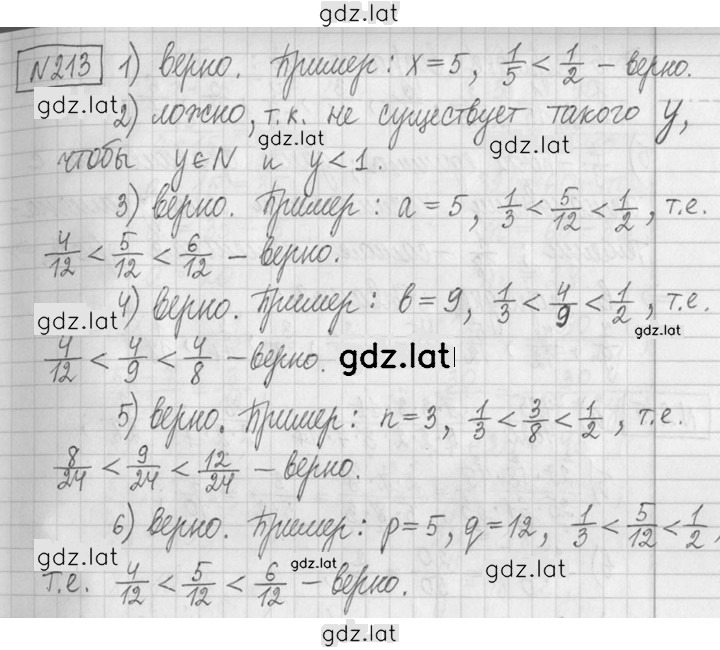 gdz.lat
№213 1) верно. Пример: x=5, 1/5 < 1/2 – верно.
gdz.lat
2) ложно, т.к. не существует такого y,
gdz.lat gdz.lat
чтобы y∈N и y<1.
3) верно. Пример: a=5, 1/3 < 5/12 < 1/2, т.е.
4/12 < 5/12 < 6/12 – верно.
4) верно. Пример: b=9, 1/3 < 4/9 < 1/2, т.е.
gdz.lat gdz.lat
4/12 < 4/9 < 4/8 – верно. gdz.lat
5) верно. Пример: n=3, 1/3 < 3/8 < 1/2, т.е.
8/24 < 9/24 < 12/24 – верно.
6) верно. Пример: p=5, q=12, 1/3 < 5/12 < 1/2,
gdz.lat gdz.lat gdz.lat
т.е. 4/12 < 5/12 < 6/12 – верно.
gdz.lat